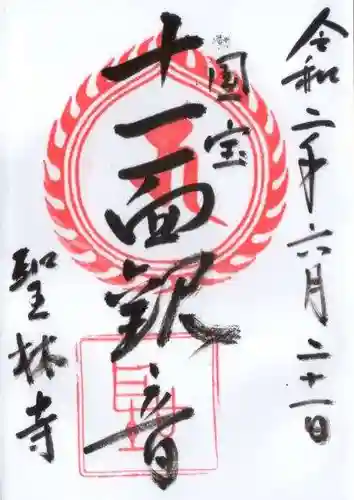 令和二年六月二十一日
国宝
十一面観音
聖林寺